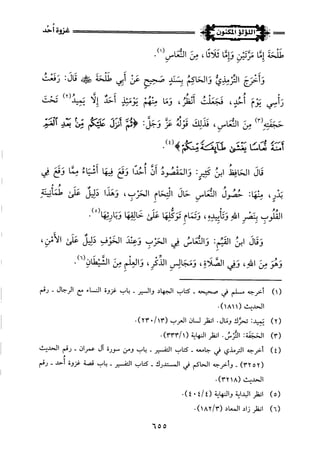 اللؤلؤ المكنون
غزوة أحد
طَلْحَةَ إِمَّا مَرَّتَيْنِ وَإِمَّا ثَلَاثًا، مِنَ النُّعَاسِ (١).
وَأَخْرَجَ التِّرْمِذِيُّ وَالحَاكِمُ بِسَنَدٍ صَحِيحٍ عَنْ أَبِي طَلْحَةَ ﷺ قَالَ: رَفَعْتُ
رَأْسِي يَوْمَ أُحُدٍ، فَجَعَلْتُ أَنْظُرُ، وَمَا مِنْهُمْ يَوْمَئِذٍ أَحَدٌ إِلَّا يَمِيدُ (٢) تَحْتَ
حَجَفَتِهِ (٣) مِنَ النُّعَاسِ، فَذَلِكَ قَوْلُهُ عَزَّ وَجَلَّ: ﴿ثُمَّ أَنزَلَ عَلَيْكُم مِّنۢ بَعْدِ الْغَمِّ
أَمَنَةً نُّعَاسًا يَغْشَىٰ طَآئِفَةً مِّنكُمْ﴾ (٤).
قَالَ الحَافِظُ ابنُ كَثِيرٍ: وَالمَقْصُودُ أَنَّ أُحُدًا وَقَعَ فِيهَا أَشْيَاءُ مِمَّا وَقَعَ فِي
بَدْرٍ، مِنْهَا: حُصُولُ النُّعَاسِ حَالَ الْتِحَامِ الحَرْبِ، وَهَذَا دَلِيلٌ عَلَى طُمَأْنِينَةِ
القُلُوبِ بِنَصْرِ اللهِ وَتَأْيِيدِهِ، وَتَمَامِ تَوَكُّلِهَا عَلَى خَالِقِهَا وَبَارِئِهَا (٥).
وَقَالَ ابنُ القَيِّمِ: وَالنُّعَاسُ فِي الحَرْبِ وَعِنْدَ الخَوْفِ دَلِيلٌ عَلَى الأَمْنِ،
وَهُوَ مِنَ اللهِ، وَفِي الصَّلَاةِ، وَمَجَالِسِ الذِّكْرِ، وَالعِلْمِ مِنَ الشَّيْطَانِ (٦).
(١) أخرجه مسلم في صحيحه - كتاب الجهاد والسير - باب غزوة النساء مع الرجال - رقم
الحديث (١٨١١).
(٢) يَمِيدُ: تحرَّك ومَال. انظر لسان العرب (١٣/ ٢٣٠).
(٣) الحَجَفَةُ: التُّرْسُ. انظر النهاية (١/ ٣٣٣).
(٤) أخرجه الترمذي في جامعه - كتاب التفسير - باب ومن سورة آل عمران - رقم الحديث
(٣٢٥٢) - وأخرجه الحاكم في المستدرك - كتاب التفسير - باب قصة غزوة أحد - رقم
الحديث (٣٢١٨).
(٥) انظر البداية والنهاية (٤/ ٤٠٤).
(٦) انظر زاد المعاد (٣/ ١٨٢).
٦٥٥